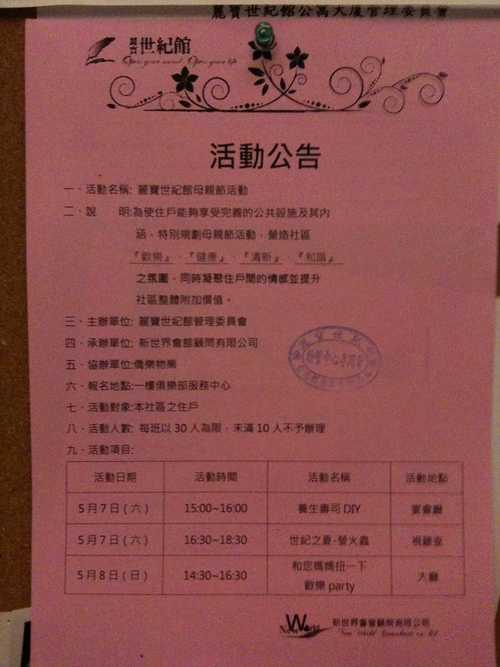 麗寶世紀館公寓大廈管理委員會
麗寶世紀館
Open your mind. Open your life
活動公告
一、活動名稱: 麗寶世紀館母親節活動
二、說 明:為使住戶能夠享受完善的公共設施及其內
涵，特別規劃母親節活動，營造社區
『歡樂』、『健康』、『清新』、『和諧』
之氛圍，同時凝聚住戶間的情感並提升
社區整體附加價值。
三、主辦單位: 麗寶世紀館管理委員會
四、承辦單位: 新世界會館顧問有限公司
五、協辦單位:僑樂物業
六、報名地點:一樓俱樂部服務中心
七、活動對象:本社區之住戶
八、活動人數: 每班以 30 人為限，未滿 10 人不予辦理
九、活動項目:
活動日期 活動時間 活動名稱 活動地點
5月7日(六) 15:00~16:00 養生壽司 DIY 宴會廳
5月7日(六) 16:30~18:30 世紀之夏-螢火蟲 視聽室
5月8日(日) 14:30~16:30 和您媽媽扭一下 大廳
歡樂 party
New World 新世界會館顧問有限公司